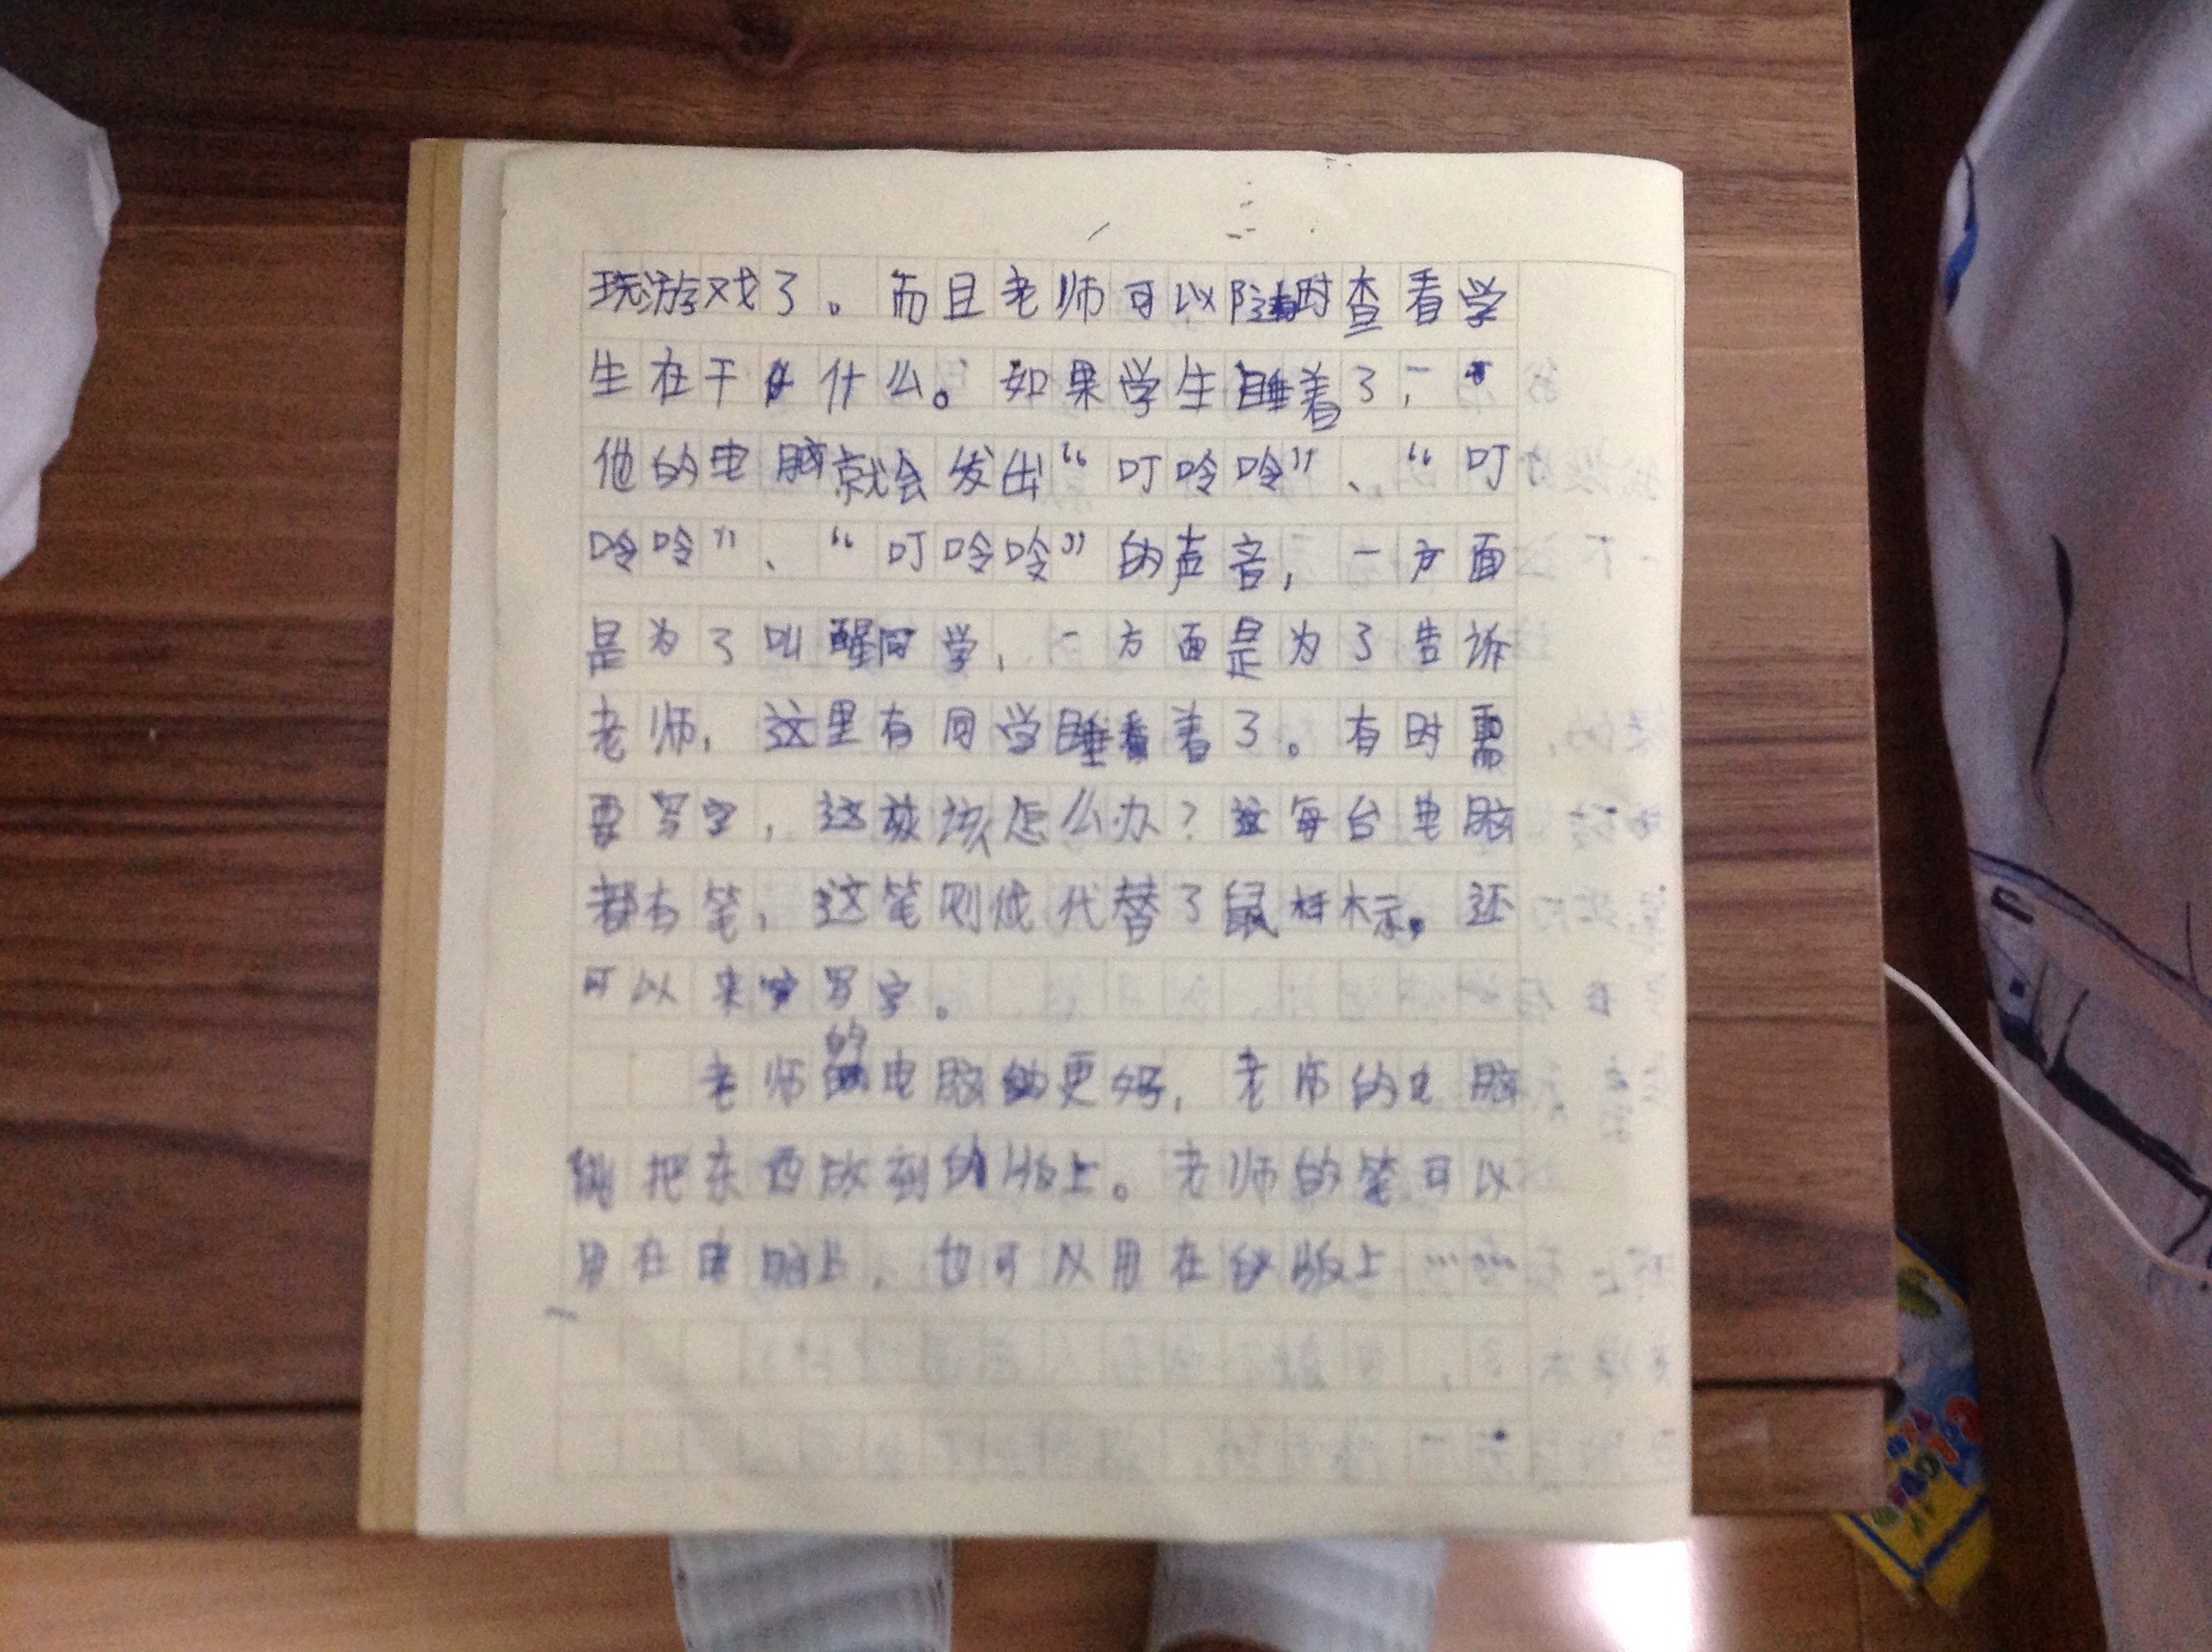 玩游戏了。而且老师可以随时查看学
生在干什么。如果学生睡着了，
他的电脑就会发出“叮呤呤”、“叮
呤呤”、“叮呤呤”的声音，一方面
是为了叫醒同学，一方面是为了告诉
老师，这里有同学睡着了。有时需
要写字，这该怎么办？每台电脑
都有笔，这笔则代替了鼠标。还
可以来写字。
老师的电脑更好，老师的电脑
能把东西放到白版上。老师的笔可以
用在电脑上，也可以用在白版上……